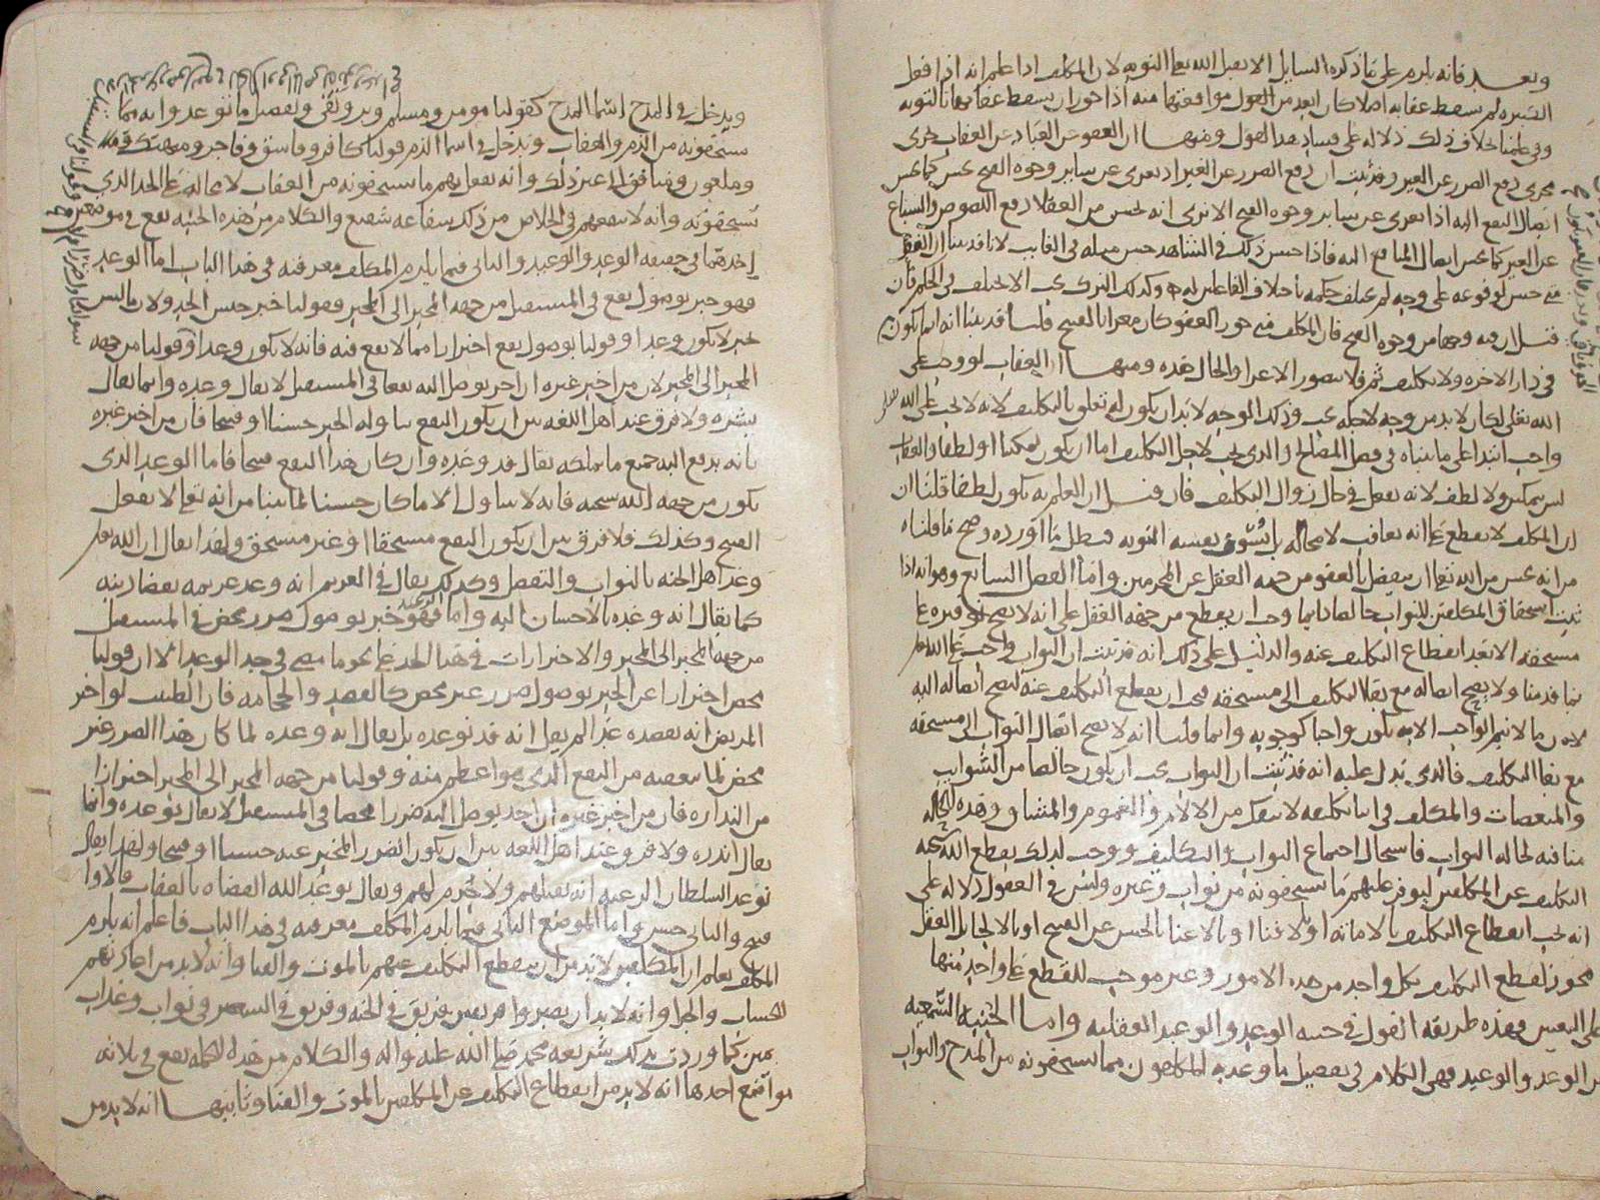 وبعد فانه يلزم على ما ذكره السايل الا يقبل الله تعالى التوبه لان المكلف اذا علم انه اذا فعل
الكبيره لم يسقط عقابه اصلا كان ابعد من القول موافقتها منه اذا جوز ان يسقط عقابها بالتوبه
وفي علمنا خلاف ذلك دلاله على فساد هذا القول ومنها ان العفو عن العباد عن العقاب جرى
مجرى دفع الضرر عن الغير وقد ثبت ان دفع الضرر عن الغير اذ تعرى عن ساير وجوه القبح يحسن كما يحسن
ايصال النفع اليه اذا تعرى عن ساير وجوه القبح الا ترى انه يحسن من العقلا دفع اللصوص والسباع
عن الغير كما يحسن ايصال المنافع اليه فاذا حسن ذلك في الشاهد حسن مثله في الغايب لانا قد بينا ان الفعل
متى حسن لوقوعه على وجه لم يختلف حكمه باختلاف الفاعلين له وكذلك الترك يجب الا يختلف في الحكم فان
قيل ان فيه وجها من وجوه القبح فان المكلف متى جوز العفو كان مغرا بالقبيح قلنا قد بينا انه انما يكون
في دار الاخره ولا تكليف ثم فلا يتصور الاغرا والحال هذه ومنها ان العقاب لو وجب على
الله تعالى لكان لا بد من وجه لاجله يجب وذلك الوجه لا بد ان يكون له تعلق بالتكليف لانه لا يجب على الله تعالى
واجب ابتدا على ما بيناه في فصل المصالح والذي يجب لاجل التكليف اما ان يكون تمكينا او لطفا والعقاب
ليس بتمكين ولا لطف لانه يفعل في حال زوال التكليف فان قيل ان العلم به يكون لطفا قلنا ان
ان المكلف لا يقطع على انه يعاقب لا محاله بل يسوف نفسه التوبه فبطل ما اورده وصح ما قلناه
من انه يحسن من الله تعالى ان يتفضل بالعفو من جهه العقل عن المجرمين واما الفصل السابع وهو انه اذا
ثبت استحقاق المكلفين للثواب خالصا دايما وجب ان يقطع من جهه العقل على انه لا يصح توفيره على
مستحقه الا بعد انقطاع التكليف عنه والدليل على ذلك انه قد ثبت ان الثواب واجب على الله تعالى
بما قدمنا ولا يصح ايصاله مع بقا التكليف الى مستحقه فيجب ان يقطع التكليف عنه ليصح ايصاله اليه
لان ما لا يتم الواجب الا به يكون واجبا كوجوبه وانما قلنا انه لا يصح ايصال الثواب الى مستحقه
مع بقا التكليف فالذي يدل عليه انه قد ثبت ان الثواب يجب ان يكون خالصا من الشوايب
والمنغصات والمكلف في اثنا تكليفه لا ينفك من الالام والغموم والمشاق وهذه الحاله
منافيه لحاله الثواب فاستحال اجتماع الثواب والتكليف ووجب لذلك يقطع الله سبحانه
التكليف عن المكلفين ليوفر عليهم ما يستحقونه من ثواب وغيره وليس في العقول دلاله على
انه يجب انقطاع التكليف بالاماته او بالافنا او بالاغنا بالحسن عن القبيح او بالالجا بل العقل
يجوز انقطاع التكليف بكل واحد من هذه الامور وغير موجب للقطع على واحد منها
على التعيين فهذه طريقه القول في حسنه الوعد والوعيد العقليه واما الحيثيه السمعيه
من الوعد والوعيد فهي الكلام في تفصيل ما وعد به المكلفون مما يستحقونه من المدح والثواب
ويدخل في المدح اسما المدح كقولنا مومن ومسلم وبر وتقى وتفصيل ما توعدوا به مما
يستحقونه من الذم والعقاب ويدخل في اسما الذم قولنا كافر وفاسق وفاجر ومتهتك
وملعون وما في غير ذلك وانه يفعل بهم ما يستحقونه من العقاب لا محاله على الحد الذي
يستحقونه وانه لا ينفعهم في الخلاص من ذلك شفاعه شفيع والكلام من هذه الحيثيه يقع في موضعين
احدهما في حقيقه الوعد والوعيد والثاني فيما يلزم المكلف معرفته في هذا الباب اما الوعد
فهو خبر بوصول نفع في المستقبل من جهه المخبر الى المخبر فقولنا خبر جنس الحد ولان ما ليس
خبر لا يكون وعدا وقولنا بوصول نفع احترازا مما لا نفع فيه فانه لا يكون وعدا وقولنا من جهه
المخبر الى المخبر لان من اخبر غيره ان اخر يوصل اليه نفعا في المستقبل لا يقال وعده وانما يقال
بشره ولا فرق عند اهل اللغه بين ان يكون النفع يتناوله الخبر حسنا او قبيحا فان من اخبر غيره
بانه يدفع اليه جميع ما يملكه يقال قد وعده وان كان هذا النفع قبيحا فاما الوعد الذي
يكون من جهه الله سبحانه فانه لا يتناول الا ما كان حسنا لما بينا من انه تعالى لا يفعل
القبيح وكذلك فلا فرق بين ان يكون النفع مستحقا او غير مستحق ولهذا يقال ان الله تعالى
وعد اهل الجنه بالثواب والتفضل وكذلك يقال في الغريم انه وعد غريمه بقضا دينه
كما يقال انه وعده بالاحسان اليه واما الوعيد فهو خبر بوصول ضرر محض في المستقبل
من جهه المخبر الى المخبر والاحترازات في هذا الحد على نحو ما مضى في حد الوعد الا ان قولنا
محض احترازا عن الخبر بوصول ضرر غير محض كالفصد والحجامه فان الطبيب لو اخبر
المريض انه يفصده غدا لم يقل انه قد توعده بل يقال انه وعده لما كان هذا الضرر غير
محض لما يعقبه من النفع الذي هو اعظم منه وقولنا من جهه المخبر الى المخبر احترازا
من النذاره فان من اخبر غيره ان احد يوصل اليه ضررا محضا في المستقبل لا يقال توعده وانما
يقال انذره ولا فرق عند اهل اللغه بين ان يكون الضرر المخبر عنه حسنا او قبيحا ولهذا يقال
توعد السلطان الرعيه انه يقتلهم ولا جرم لهم ويقال توعد الله العصاه بالعقاب فالاول
قبيح والثاني حسن واما الموضع الثاني فيما يلزم المكلف معرفته في هذا الباب فاعلم انه يلزم
المكلف يعلم ان المكلفين لا بد من ان ينقطع التكليف عنهم بالموت والفنا وانه لا بد من
للحساب والجزا وانه لا بد ان يصيروا فريقين فريق في الجنه وفريق في السعير وفي ثواب وعذاب
كما وردت بذلك شريعه محمد صلى الله عليه واله والكلام من هذه الجمله يقع في ثلاثه
مواضع احدها انه لا بد من انقطاع التكليف عن المكلفين بالموت والفنا وثانيها انه لا بد من